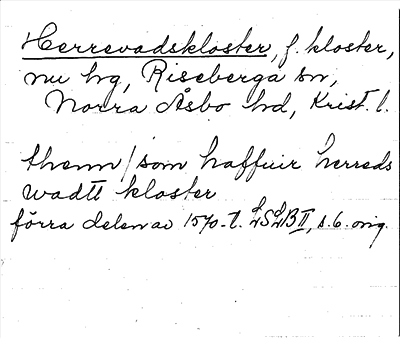 Herrevadskloster, f. kloster,
nu hg, Riseberga sn,
Norra Åsbo hd, Krist. l.
thenn / som haffuir herreds
wadtt kloster
förra delen av 1570-t. LSLB II, s. 6. orig.